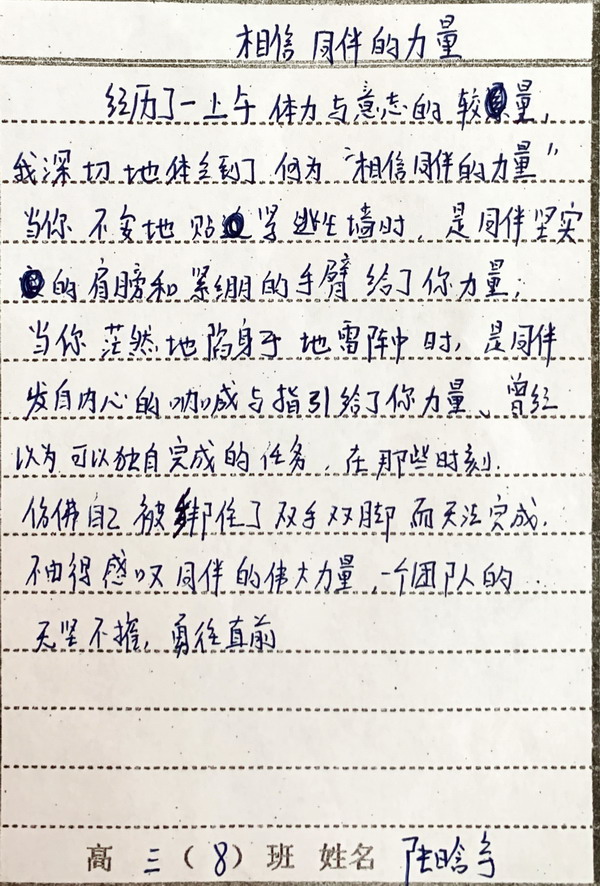 相信同伴的力量
经历了一上午体力与意志的较量，
我深切地体会到了何为“相信同伴的力量”
当你不安地贴紧逃生墙时，是同伴坚实
的肩膀和紧绷的手臂给了你力量；
当你茫然地陷身于地雷阵中时，是同伴
发自内心的呐喊与指引给了你力量、曾经
以为可以独自完成的任务，在那些时刻，
仿佛自己被绑住了双手双脚而无法完成.
不由得感叹同伴的伟大力量，一个团队的
无坚不摧，勇往直前
高三（8）班 姓名 陆晗